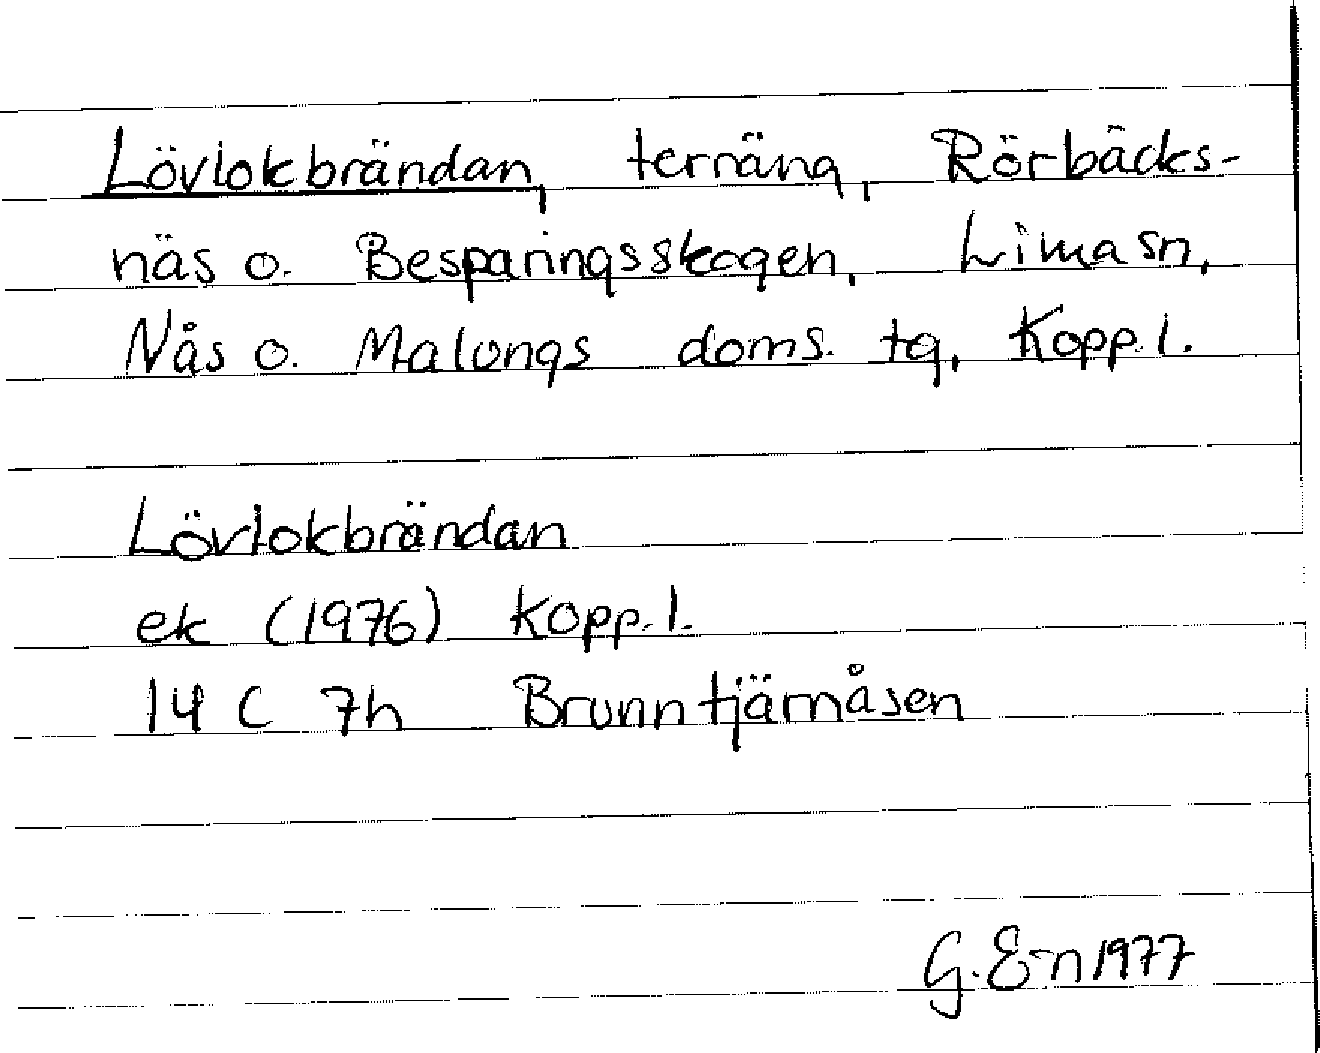 Lövlokbrändan, terräng, Rörbäcks-
näs o. Besparingsskogen, Lima sn,
Nås o. Malungs doms. tg, Kopp. l.
Lövlokbrändan
ek (1976) Kopp. l.
14 C 7h Brunntjärnåsen
G. E-n 1977